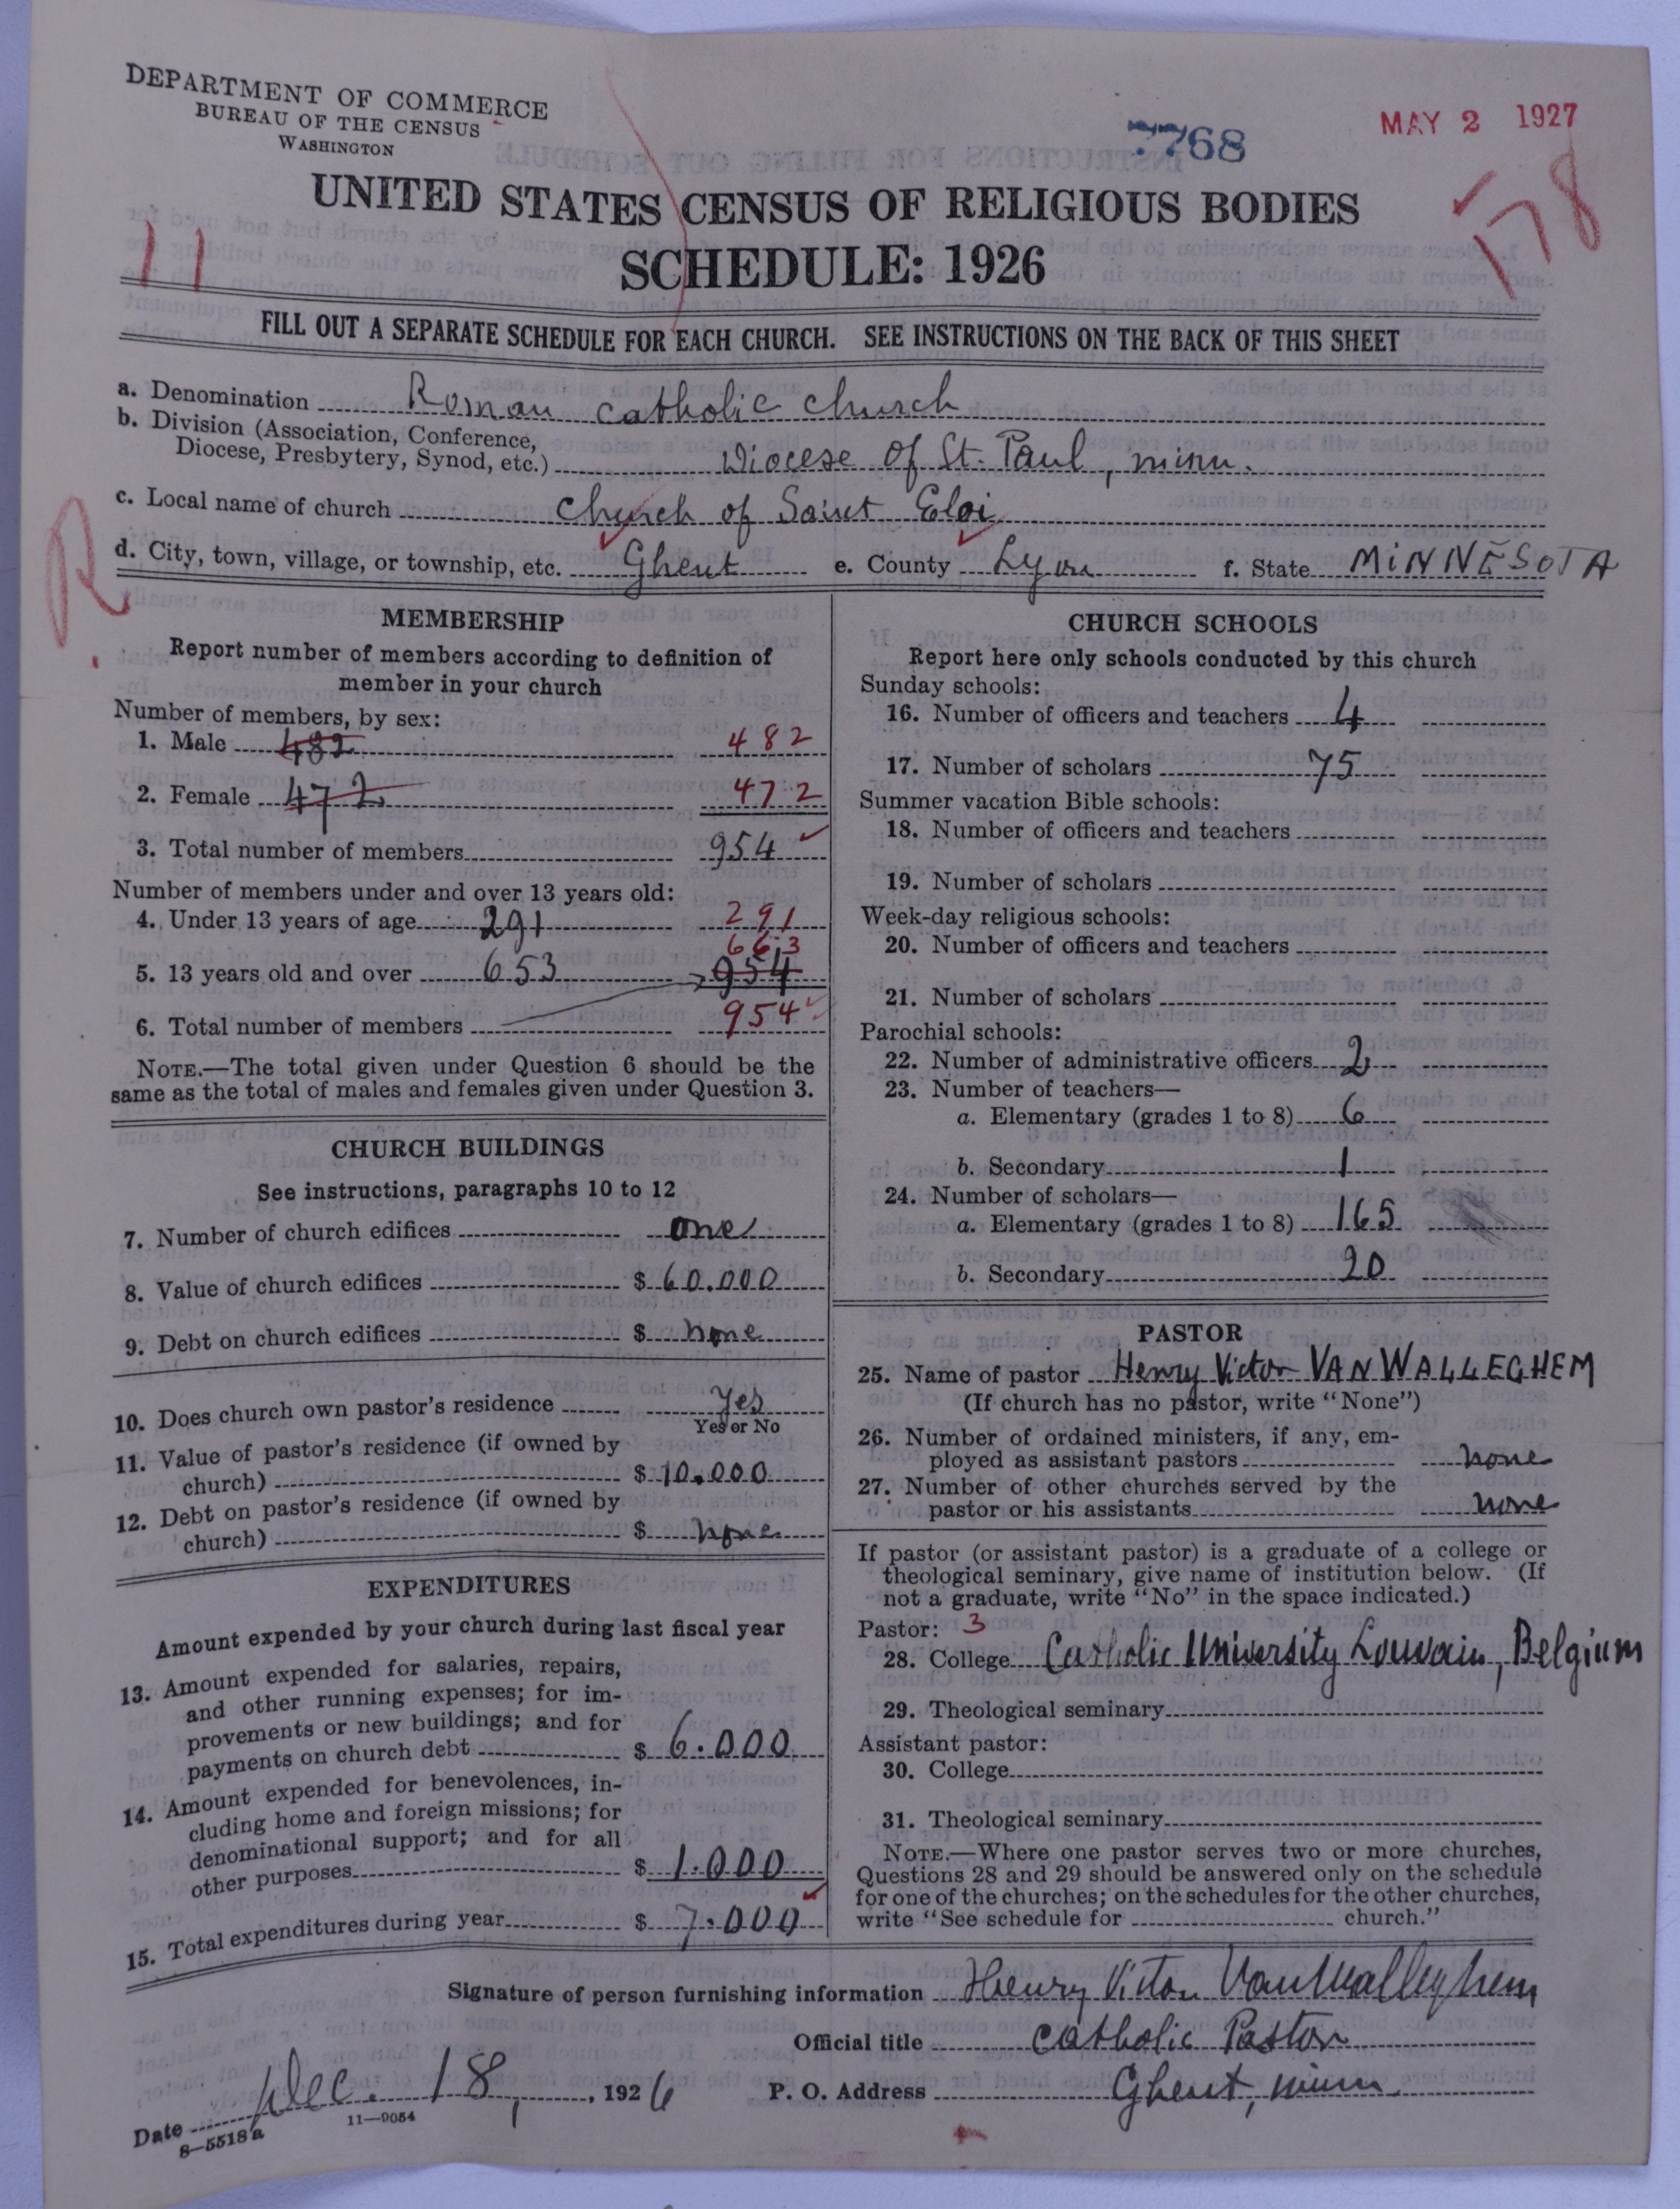 DEPARTMENT OF COMMERCE
BUREAU OF THE CENSUS
WASHINGTON
7768
MAY 2 1927
178
11
UNITED STATES CENSUS OF RELIGIOUS BODIES
SCHEDULE: 1926
FILL OUT A SEPARATE SCHEDULE FOR EACH CHURCH. SEE INSTRUCTIONS ON THE BACK OF THIS SHEET
a. Denomination Roman Catholic church
b. Division (Association, Conference,
Diocese, Presbytery, Synod, etc.) Diocese of St. Paul, minn.
c. Local name of church Church of Saint Eloi
R.
d. City, town, village, or township, etc. Ghent e. County Lyon f. State MINNESOTA
MEMBERSHIP
Report number of members according to definition of
member in your church
Number of members, by sex:
1. Male 482 482
2. Female 472 472
3. Total number of members 954
Number of members under and over 13 years old:
4. Under 13 years of age 291 291
663
5. 13 years old and over 653 954
6. Total number of members 954
NOTE.—The total given under Question 6 should be the
same as the total of males and females given under Question 3.
CHURCH BUILDINGS
See instructions, paragraphs 10 to 12
7. Number of church edifices one
8. Value of church edifices $ 60.000
9. Debt on church edifices $ none
10. Does church own pastor's residence yes
Yes or No
11. Value of pastor's residence (if owned by
church) $ 10.000
12. Debt on pastor's residence (if owned by
church) $ none
EXPENDITURES
Amount expended by your church during last fiscal year
13. Amount expended for salaries, repairs,
and other running expenses; for im-
provements or new buildings; and for
payments on church debt $ 6.000
14. Amount expended for benevolences, in-
cluding home and foreign missions; for
denominational support; and for all
other purposes $ 1.000
15. Total expenditures during year $ 7.000
CHURCH SCHOOLS
Report here only schools conducted by this church
Sunday schools:
16. Number of officers and teachers 4
17. Number of scholars 75
Summer vacation Bible schools:
18. Number of officers and teachers
19. Number of scholars
Week-day religious schools:
20. Number of officers and teachers
21. Number of scholars
Parochial schools:
22. Number of administrative officers 2
23. Number of teachers—
a. Elementary (grades 1 to 8) 6
b. Secondary 1
24. Number of scholars—
a. Elementary (grades 1 to 8) 165
b. Secondary 20
PASTOR
25. Name of pastor Henry Victor VAN WALLEGHEM
(If church has no pastor, write "None")
26. Number of ordained ministers, if any, em-
ployed as assistant pastors none
27. Number of other churches served by the
pastor or his assistants none
If pastor (or assistant pastor) is a graduate of a college or
theological seminary, give name of institution below. (If
not a graduate, write "No" in the space indicated.)
Pastor: 3
28. College Catholic University Louvain, Belgium
29. Theological seminary
Assistant pastor:
30. College
31. Theological seminary
NOTE.—Where one pastor serves two or more churches,
Questions 28 and 29 should be answered only on the schedule
for one of the churches; on the schedules for the other churches,
write "See schedule for church."
Signature of person furnishing information Henry Victor VanWalleghem
Official title Catholic Pastor
Date Dec. 18, 1926 P. O. Address Ghent, minn.
8—5518a 11—9054